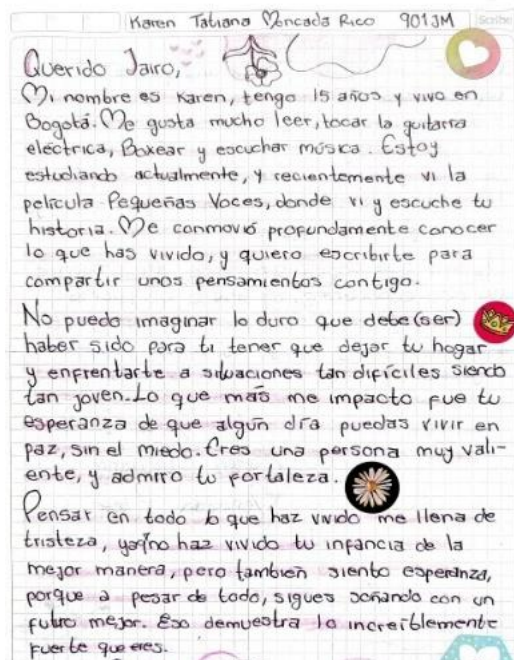 Karen Tatiana Moncada Rico 901JM
Scribe
Querido Jairo,
Mi nombre es Karen, tengo 15 años y vivo en
Bogotá. Me gusta mucho leer, tocar la guitarra
eléctrica, Boxear y escuchar música. Estoy
estudiando actualmente, y recientemente vi la
película Pequeñas Voces, donde vi y escuche tu
historia. Me conmovió profundamente conocer
lo que has vivido, y quiero escribirte para
compartir unos pensamientos contigo.
No puedo imaginar lo duro que debe (ser)
haber sido para ti tener que dejar tu hogar
y enfrentarte a situaciones tan difíciles siendo
tan joven. Lo que más me impacto fue tu
esperanza de que algún día puedas vivir en
paz, sin el miedo. Eres una persona muy vali-
ente, y admiro tu fortaleza.
Pensar en todo lo que haz vivido me llena de
tristeza, no haz vivido tu infancia de la
mejor manera, pero también siento esperanza,
porque a pesar de todo, sigues soñando con un
futuro mejor. Eso demuestra lo increíblemente
fuerte que eres.